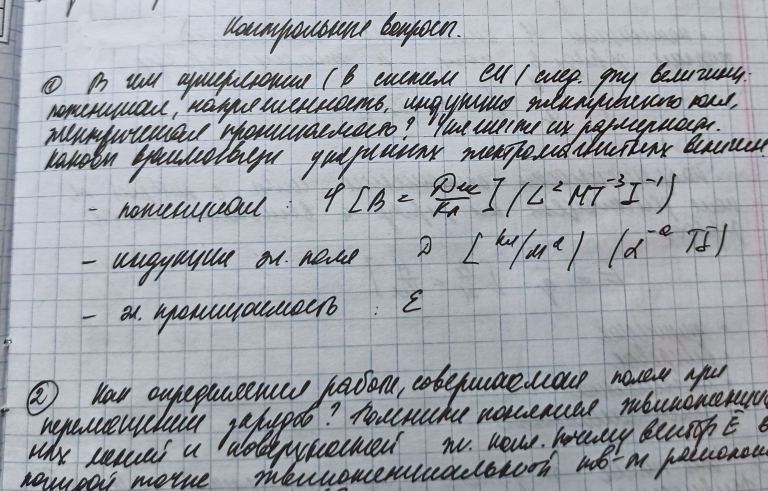 Контрольные вопросы.
① В чем измеряются (в системе СИ) след. физ величины:
потенциал, напряженность, индукция электрического поля,
электрическая проницаемость? Укажите их размерности.
Каковы взаимосвязи указанных электромагнитных величин.
- потенциал : φ [В = Дж/Кл] (L² M T⁻³ I⁻¹)
- индукция эл. поля D [Кл/м²) (L⁻² T I)
- эл. проницаемость : ε
② Как определяется работа, совершаемая полем при
перемещении зарядов? Поясните понятия эквипотенциаль
ных линий и поверхностей эл. поля. почему вектор E в
каждой точке эквипотенциальной пов-ти располож